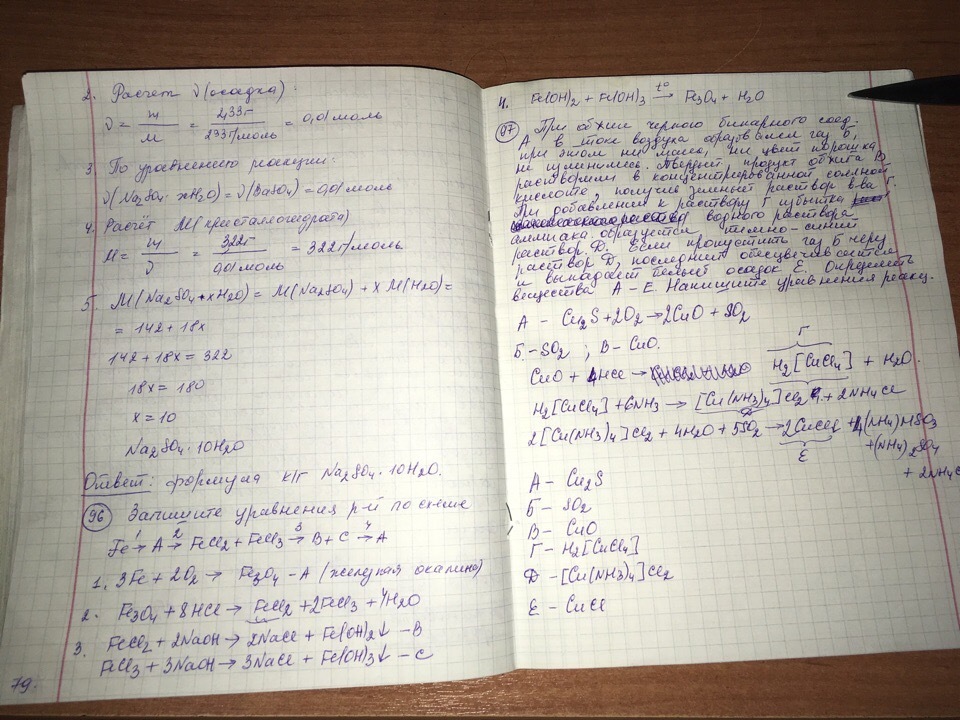 2. Расчет ν(осадка):
ν = m/M = 2,33г/233г/моль = 0,01 моль
3. По уравнению реакции:
ν(Na2SO4·xH2O) = ν(BaSO4) = 0,01 моль
4. Расчёт M(кристаллогидрата)
M = m/ν = 3,22г/0,01 моль = 322г/моль
5. M(Na2SO4·xH2O) = M(Na2SO4) + x M(H2O) =
= 142 + 18x
142 + 18x = 322
18x = 180
x = 10
Na2SO4·10H2O
Ответ: формула к/г Na2SO4·10H2O.
96 Запишите уравнения р-й по схеме
Fe →1 A →2 FeCl2 + FeCl3 →3 B + C →4 A
1. 3Fe + 2O2 → Fe3O4 - A (железная окалина)
2. Fe3O4 + 8HCl → FeCl2 + 2FeCl3 + 4H2O
3. FeCl2 + 2NaOH → 2NaCl + Fe(OH)2↓ - B
FeCl3 + 3NaOH → 3NaCl + Fe(OH)3↓ - C
79.
4. Fe(OH)2 + Fe(OH)3 →t° Fe3O4 + H2O
97 При обжиге черного бинарного соед.
А в токе воздуха образовался газ Б,
при этом ни масса, ни цвет порошка
не изменились. Твердый продукт обжига В
растворили в концентрированной соляной
кислоте, получив зеленый раствор в-ва Г.
При добавлении к раствору Г избытка
водного раствора
аммиака образуется темно-синий
раствор Д. Если пропустить газ Б через
раствор Д, последний обесцвечивается
и выпадает белый осадок Е. Определить
вещества А - Е. Напишите уравнения реакц.
А - Cu2S + 2O2 → 2CuO + SO2
Б - SO2 ; В - CuO.
Г
CuO + 4HCl → H2[CuCl4] + H2O.
H2[CuCl4] + 6NH3 → [Cu(NH3)4]Cl2 + 2NH4Cl
Д
2[Cu(NH3)4]Cl2 + 4H2O + 5SO2 → 2CuCl + 4(NH4)HSO3
Е
+ (NH4)2SO4
+ 2NH4C
А - Cu2S
Б - SO2
В - CuO
Г - H2[CuCl4]
Д - [Cu(NH3)4]Cl2
Е - CuCl